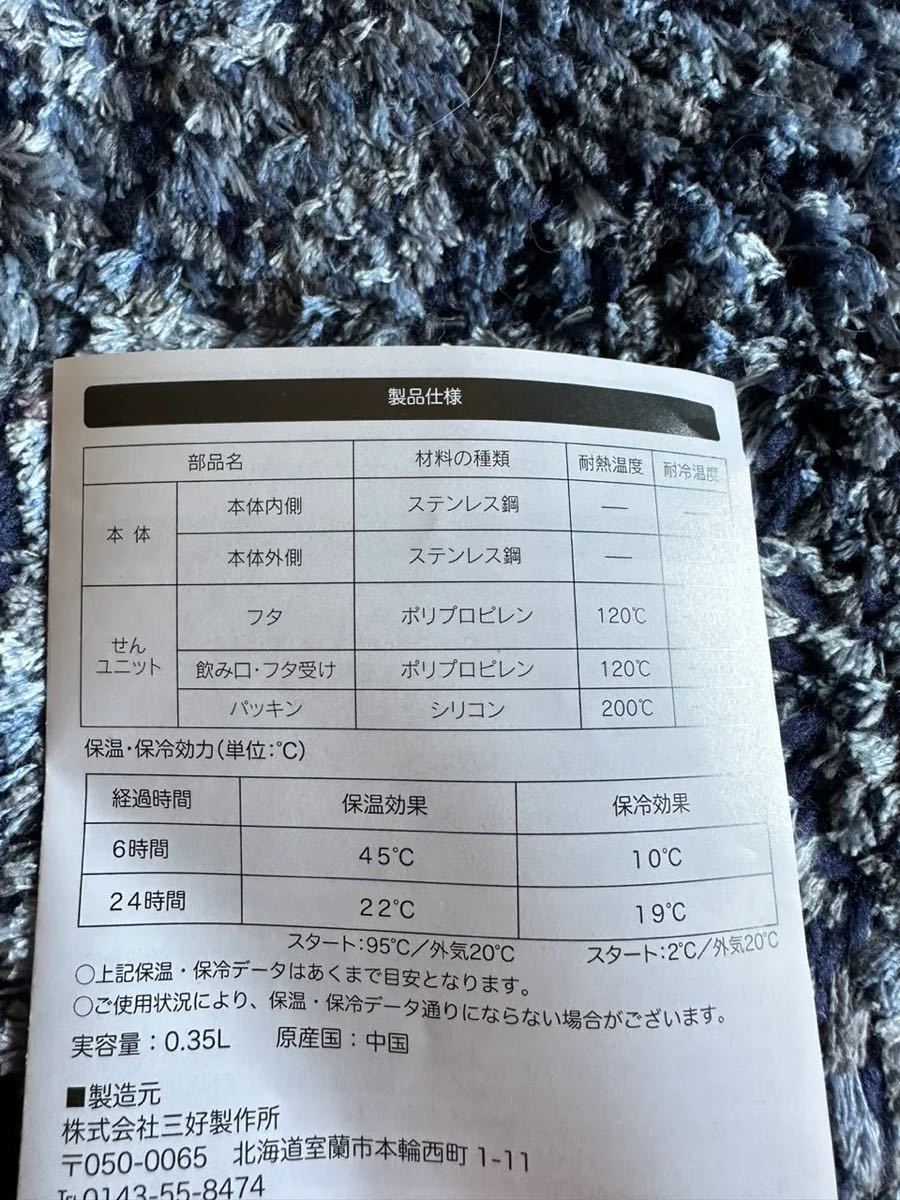 製品仕様
部品名 材料の種類 耐熱温度 耐冷温度
本体 本体内側 ステンレス鋼 — —
本体外側 ステンレス鋼 —
せんユニット フタ ポリプロピレン 120℃
飲み口・フタ受け ポリプロピレン 120℃
パッキン シリコン 200℃
保温・保冷効力(単位:℃)
経過時間 保温効果 保冷効果
6時間 45℃ 10℃
24時間 22℃ 19℃
スタート:95℃/外気20℃ スタート:2℃/外気20℃
○上記保温・保冷データはあくまで目安となります。
○ご使用状況により、保温・保冷データ通りにならない場合がございます。
実容量:0.35L 原産国:中国
■製造元
株式会社三好製作所
〒050-0065 北海道室蘭市本輪西町 1-11
℡0143-55-8474